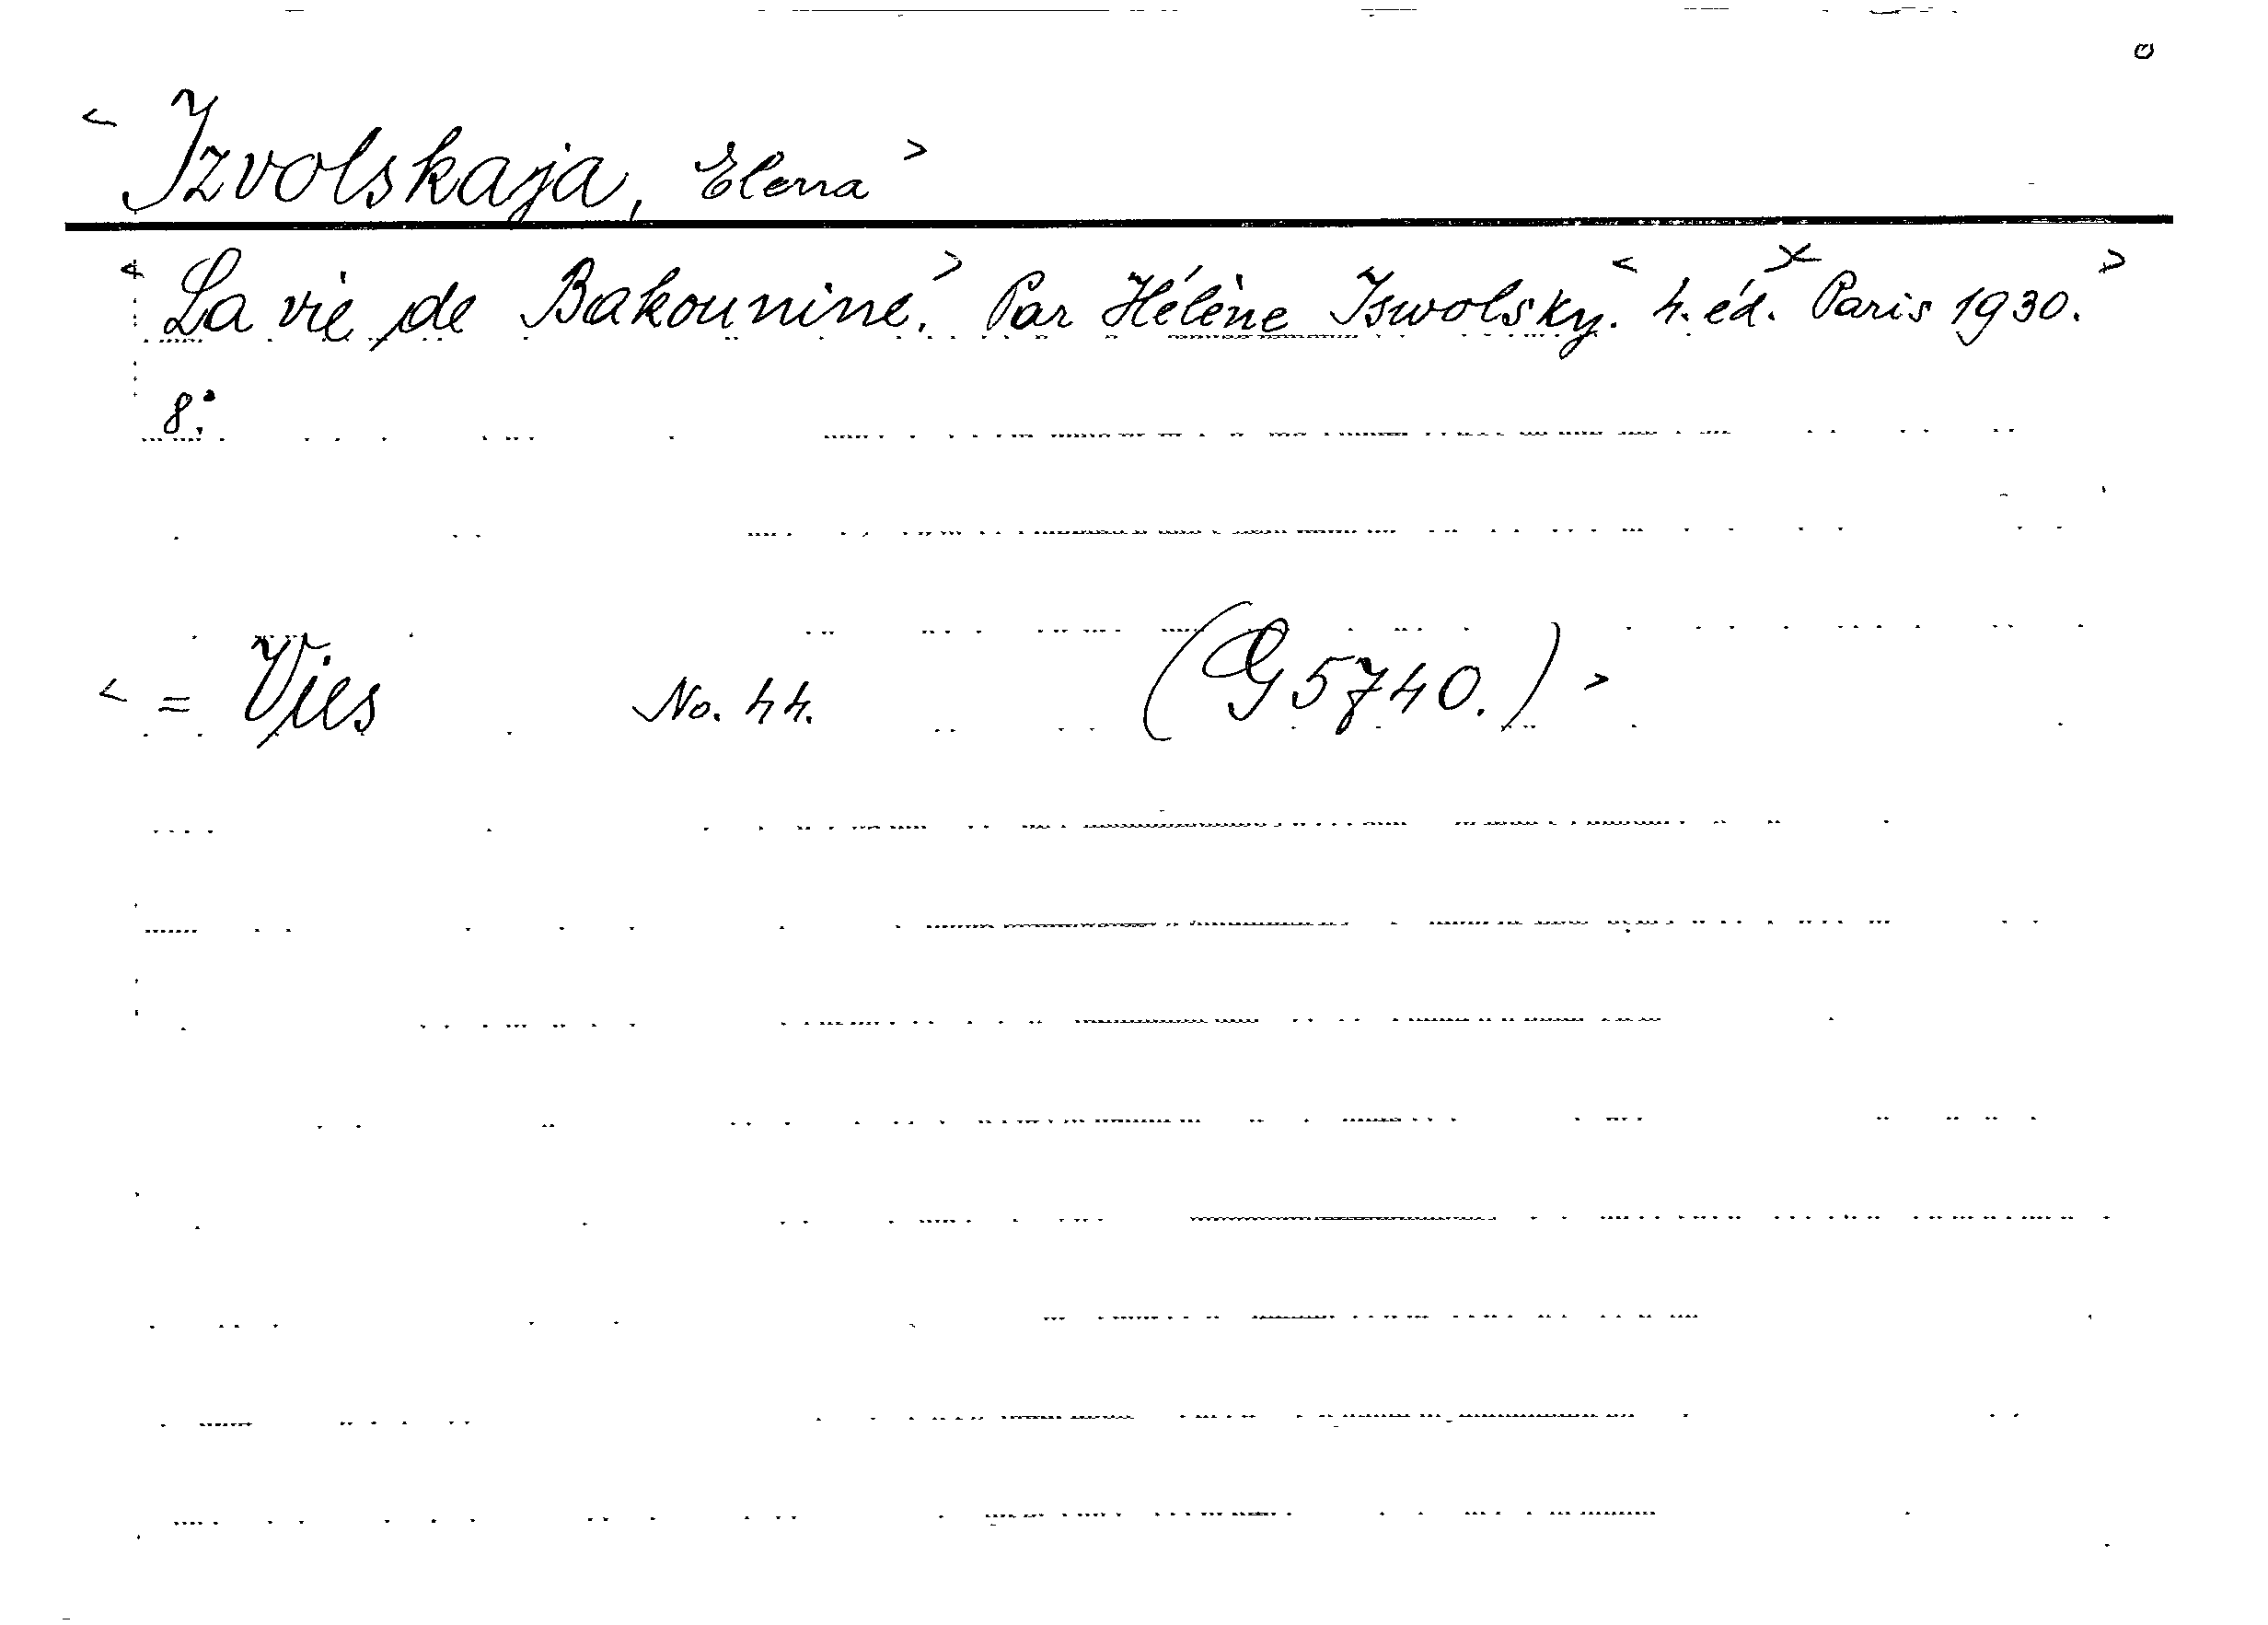 < Izvolskaja, Elena >
< La vie de Bakounine. > Par Hélène Iswolsky. < 4. éd. Paris 1930. >
8°.
< = Vies No. 44. (G 5740.) >